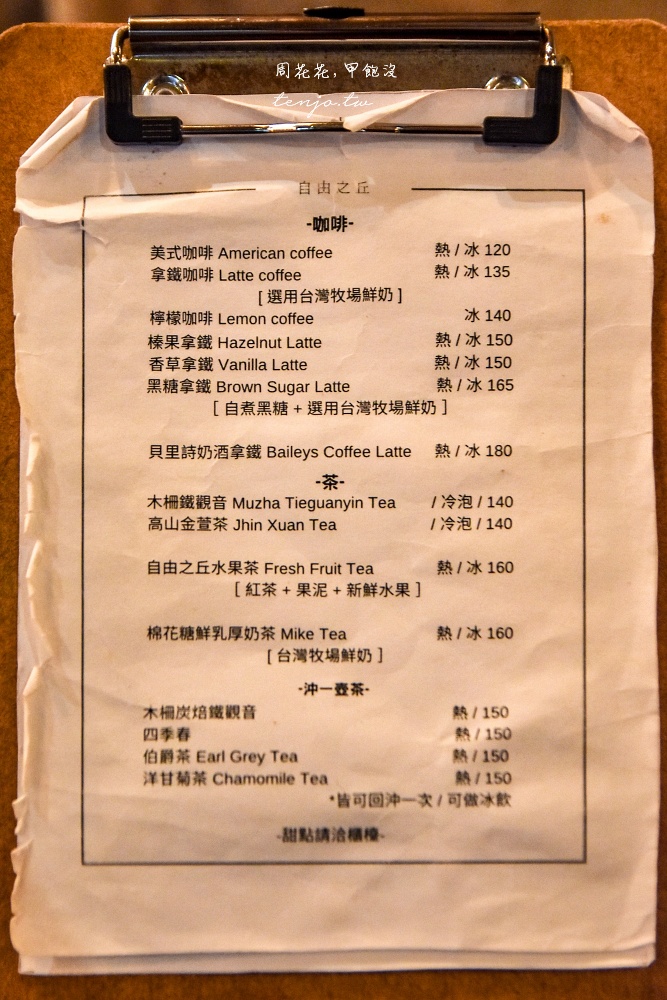 周花花，甲飽沒
tenjo.tw
自由之丘
-咖啡-
美式咖啡 American coffee 熱 / 冰 120
拿鐵咖啡 Latte coffee 熱 / 冰 135
[ 選用台灣牧場鮮奶 ]
檸檬咖啡 Lemon coffee 冰 140
榛果拿鐵 Hazelnut Latte 熱 / 冰 150
香草拿鐵 Vanilla Latte 熱 / 冰 150
黑糖拿鐵 Brown Sugar Latte 熱 / 冰 165
[ 自煮黑糖 + 選用台灣牧場鮮奶 ]
貝里詩奶酒拿鐵 Baileys Coffee Latte 熱 / 冰 180
-茶-
木柵鐵觀音 Muzha Tieguanyin Tea / 冷泡 / 140
高山金萱茶 Jhin Xuan Tea / 冷泡 / 140
自由之丘水果茶 Fresh Fruit Tea 熱 / 冰 160
[ 紅茶 + 果泥 + 新鮮水果 ]
棉花糖鮮乳厚奶茶 Mike Tea 熱 / 冰 160
[ 台灣牧場鮮奶 ]
-沖一壺茶-
木柵炭焙鐵觀音 熱 / 150
四季春 熱 / 150
伯爵茶 Earl Grey Tea 熱 / 150
洋甘菊茶 Chamomile Tea 熱 / 150
*皆可回沖一次 / 可做冰飲
-甜點請洽櫃檯-